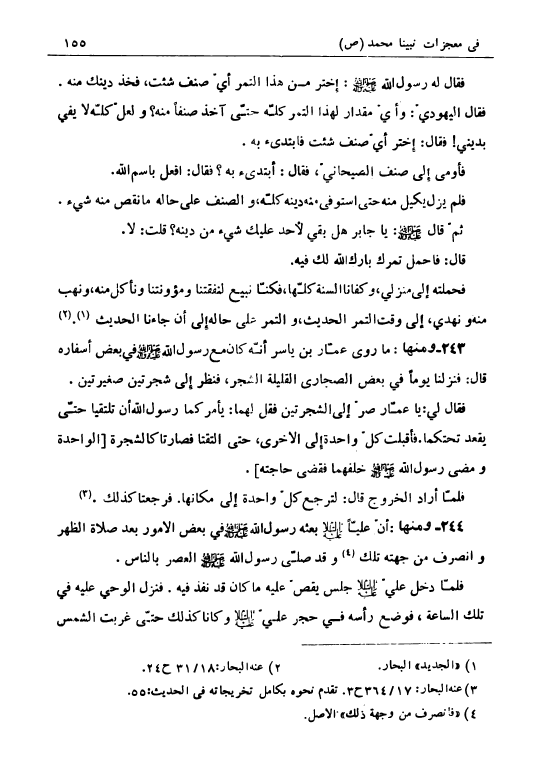 في معجزات نبينا محمد (ص) ١٥٥
فقال له رسول الله ﷺ : إختر مـن هذا التمر أيّ صنف شئت، فخذ دينك منه .
فقال اليهوديّ: وأيّ مقدار لهذا التمر كلّه حتّى آخذ صنفاً منه؟ و لعلّ كلّه لا يفي
بديني! فقال: إختر أيّ صنف شئت فابتدىء به .
فأومى إلى صنف الصيحانيّ، فقال : أبتدىء به ؟ فقال: افعل باسم الله.
فلم يزل يكيل منه حتى استوفى منه دينه كلّه، و الصنف على حاله ما نقص منه شيء .
ثمّ قال ﷺ: يا جابر هل بقي لأحد عليك شيء من دينه؟ قلت: لا.
قال: فاحمل تمرك بارك الله لك فيه.
فحملته إلى منزلي، و كفانا السنة كلّها، فكنّا نبيع لنفقتنا ومؤونتنا ونأكل منه، ونهب
منه و نهدي، إلى وقت التمر الحديث، و التمر على حاله إلى أن جاءنا الحديث (١).(٢)
٢٤٣ـ ومنها : ما روى عمّار بن ياسر أنّه كان مع رسول الله ﷺ في بعض أسفاره
قال: فنزلنا يوماً في بعض الصحارى القليلة الشجر، فنظر إلى شجرتين صغيرتين .
فقال لي: يا عمّار صر إلى الشجرتين فقل لهما: يأمركما رسول الله أن تلتقيا حتّى
يقعد تحتكما. فأقبلت كلّ واحدة إلى الاخرى، حتى التقتا فصارتا كالشجرة [الواحدة
و مضى رسول الله ﷺ خلفهما فقضى حاجته] .
فلمّا أراد الخروج قال: لترجع كلّ واحدة إلى مكانها. فرجعتا كذلك .(٣)
٢٤٤ـ ومنها : أنّ عليّاً عليه السلام بعثه رسول الله ﷺ في بعض الامور بعد صلاة الظهر
و انصرف من جهته تلك (٤) و قد صلّى رسول الله ﷺ العصر بالناس .
فلمّا دخل عليّ عليه السلام جلس يقصّ عليه ما كان قد نفذ فيه . فنزل الوحي عليه في
تلك الساعة ، فوضع رأسه فـي حجر علـيّ عليه السلام و كانا كذلك حتّى غربت الشمس
١) «الجديد» البحار. ٢) عنه البحار: ٣١/١٨ ح٢٤.
٣) عنه البحار: ٣٦٤/١٧ ح٣. تقدم نحوه بكامل تخريجاته في الحديث: ٥٥.
٤) «فانصرف من وجهة ذلك» الاصل.